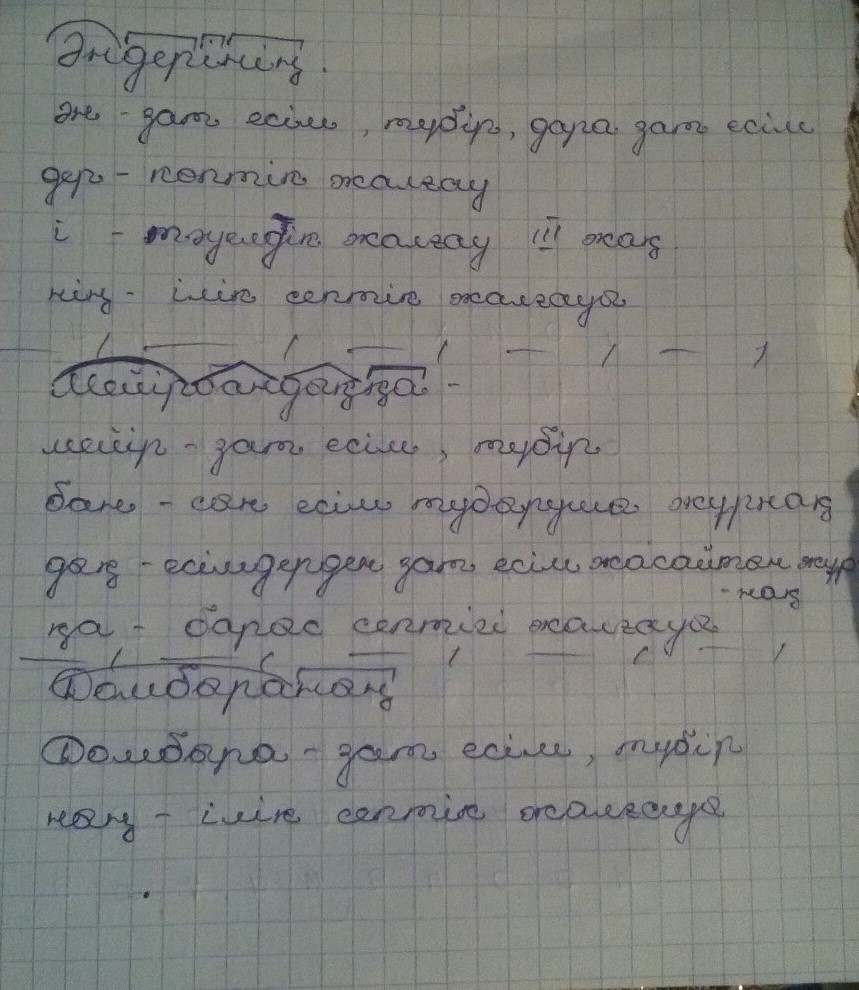 Әндерінің.
ән - зат есім, түбір, дара зат есім
дер - көптік жалғау
і - тәуелдік жалғау III жақ
нің - ілік септік жалғауы
Мейірбандыққа -
мейір - зат есім, түбір
бан - сын есім тудырушы жұрнақ
дық - есімдерден зат есім жасайтын жұр
- нақ
қа - барыс септігі жалғауы
Домбыраның
Домбыра - зат есім, түбір
ның - ілік септік жалғауы